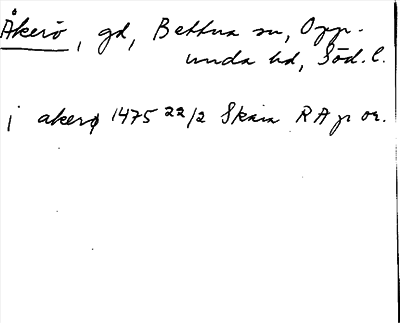 Åkerö, gd, Bettna sn, Opp-
unda hd, Söd. l.
i akerø 1475 22/2 Skara RA p or.